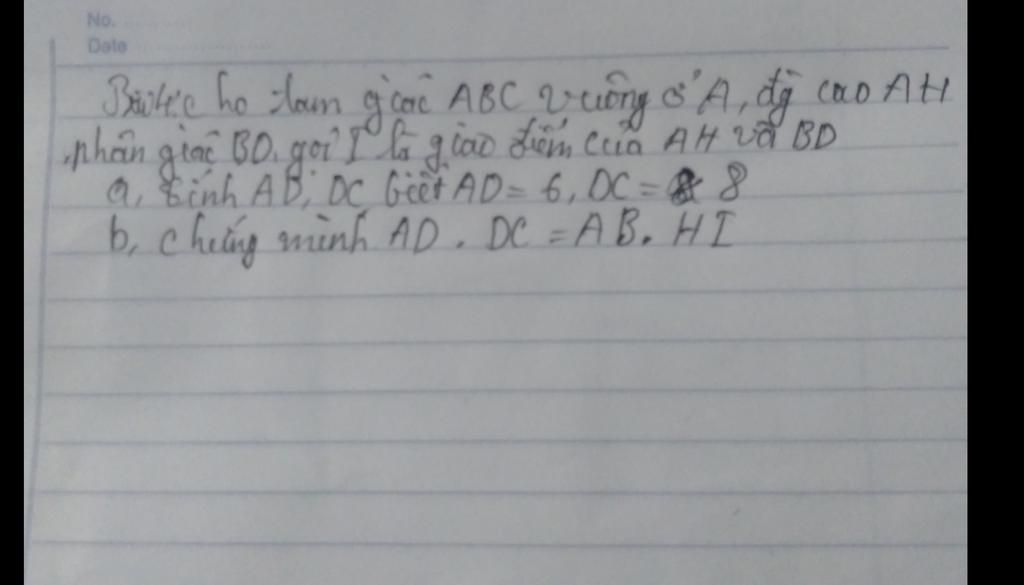 No.
Date
Bài4: cho tam giác ABC vuông ở A, đg cao AH
phân giác BD. gọi I là giao điểm của AH và BD
a, tính AD, DC biết AD = 6, DC = 8
b, chứng minh AD . DC = AB. HI